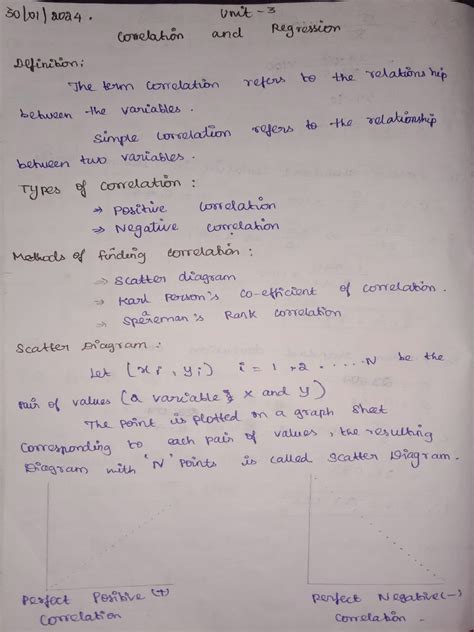 30/01/2024.
Unit - 3
Correlation and Regression
Definition:
The term correlation refers to the relationship
between the variables.
Simple correlation refers to the relationship
between two variables.
Types of correlation:
→ Positive correlation
→ Negative correlation
Methods of finding correlation:
→ Scatter diagram
→ Karl Person's co-efficient of correlation.
→ Spereman's Rank correlation
Scatter Diagram:
Let (xi, yi) i = 1, 2 ..... N be the
pair of values (a variable X and Y)
The point is plotted on a graph sheet
corresponding to each pair of values, the resulting
Diagram with 'N' points is called Scatter Diagram.
Perfect Positive (+)
Correlation
Perfect Negative (-)
Correlation.